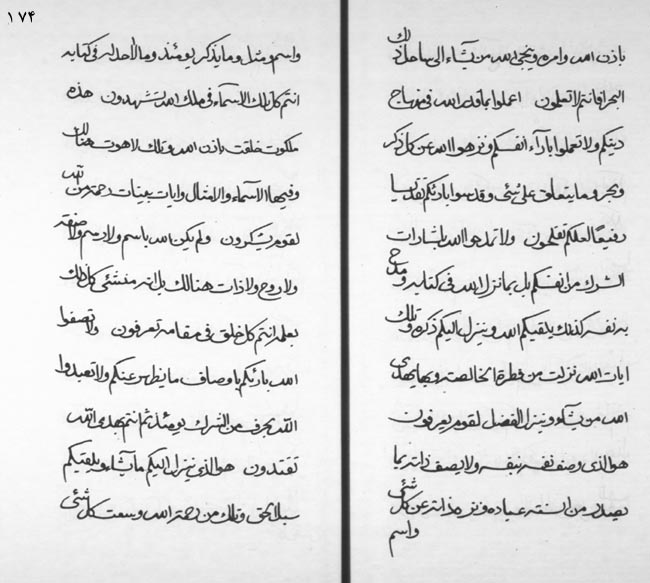 ١٧۴
باذن الله وامره وينجي الله من يشاء الى ساحل ذلك
البحر افانتم لا تعلمون اعملوا بما قدر الله في منهاج
دينكم ولا تعملوا بآراء انفسكم ونزهوا الله عن كل ذكر
وبحر وما يتعلق على شئ وقدسوا بارئكم تقديسا
رفيعا لعلكم تفلحون ولا تمدهوا الله باشارات
الشرك من انفسكم بل بما نزل الله في كتابه ومدح
به نفسه كذلك يلقيكم الله وينزل اليكم ذكره وتلك
ايات الله نزلت من فطرة الخالصة وبها يهدي
الله من يشاء وينزل الفضل لقوم يعرفون
هو الذي وصف نفسه بنفسه ولا يصف ذاته بما
يصدر من السنة عباده ونزه ذاته عن كل شئ
واسم
واسم ومثل وما يذكر يومئذ وما لا احد له في كتابه
انتم كل تلك الاسماء في ملك الله تشهدون هذه
ملكوت خلقت باذن الله وتلك لاهوت هنالك
وفيها الاسماء والامثال وايات بينات رحمة من الله
لقوم يشكرون ولم يكن الله باسم ولا رسم ولا صفة
ولا روح ولا ذات هنالك بل انه منشئ كل ذلك
بعلمه انتم كل خلق في مقامه تعرفون ولا تصفوا
الله بارئكم باوصاف ما يظهر من عندكم ولا تعبدوا
الله بحرف من الشرك يومئذ ثم انتم بهدى الله
تقتدون هو الذي ينزل اليكم ما يشاء ويلقيكم
سبل الحق وتلك من رحمة الله وسعت كل شئ